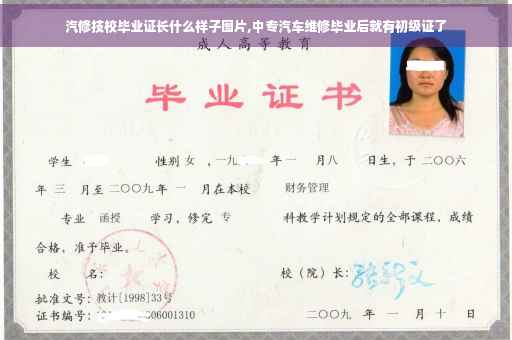 汽修技校毕业证长什么样子图片,中专汽车维修毕业后就有初级证了
成人高等教育
毕业证书
学生 性别 女 ,一九 年 一 月 八 日生,于 二〇〇六
年 三 月至 二〇〇九 年 一 月在本校 财务管理
专业 函授 学习,修完 专 科教学计划规定的全部课程,成绩
合格,准予毕业。
校 名: 校(院)长:
批准文号:教计[1998]33号
证书编号: 006001310 二〇〇九 年 一 月 十 日